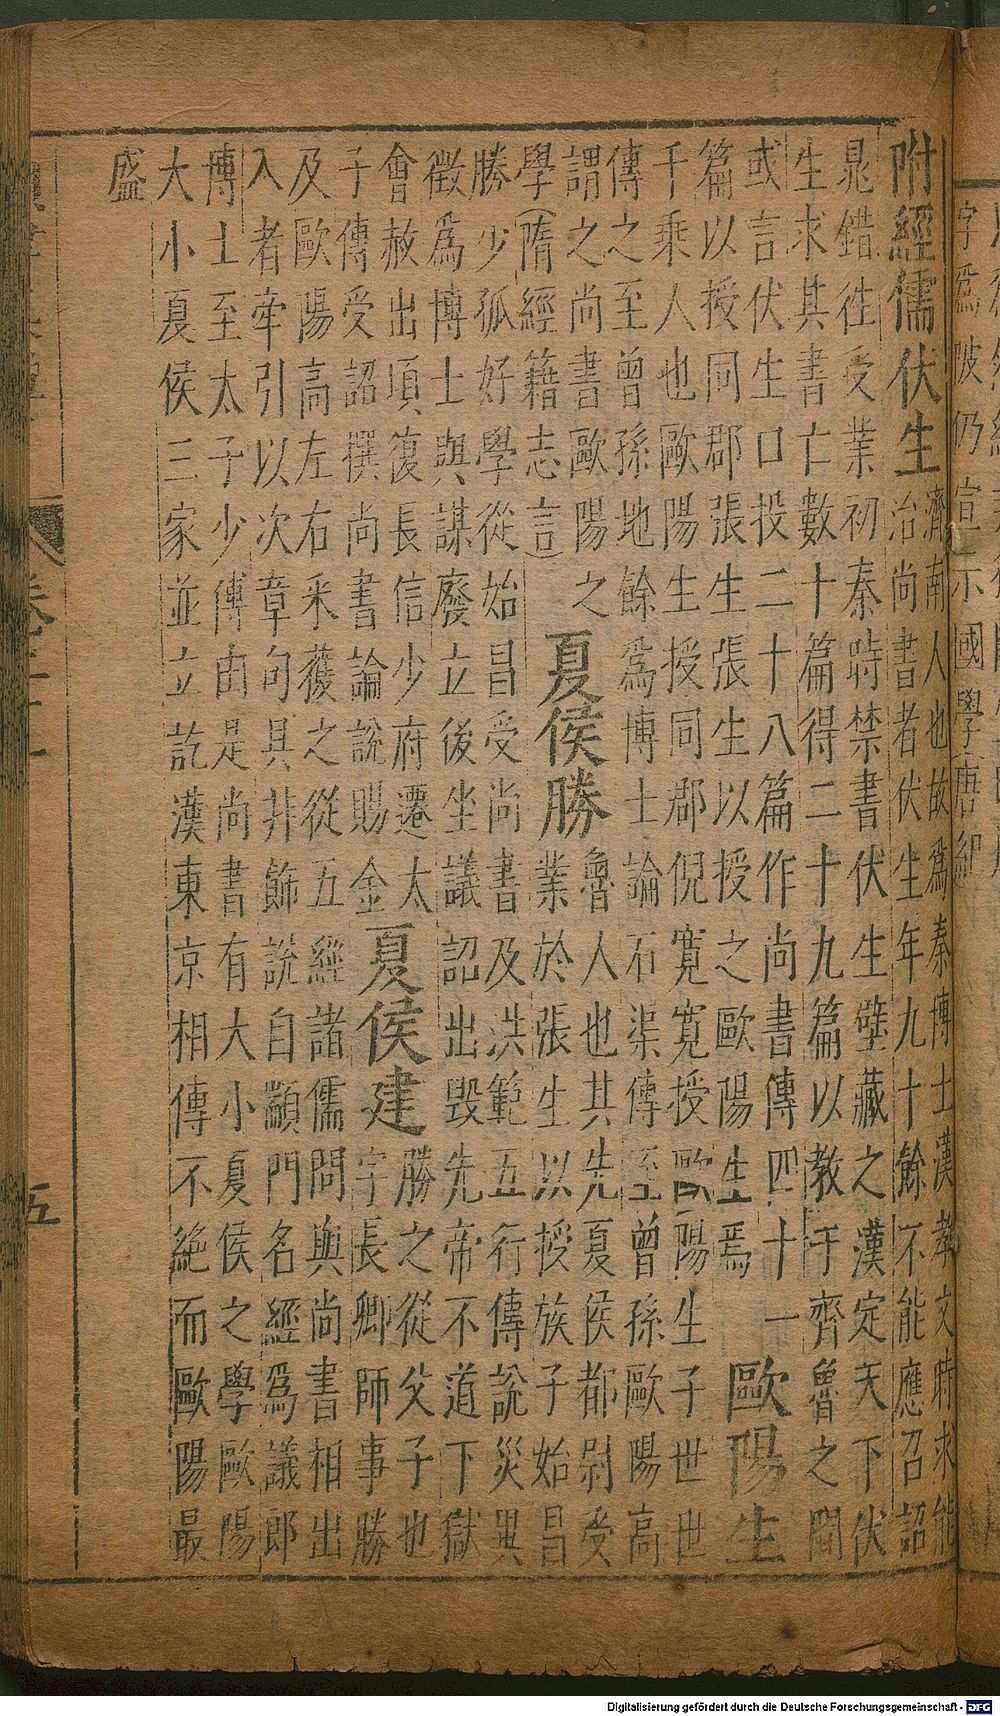 字爲陂仍宣示國學唐紀
附經儒伏生
濟南人也故爲秦博士漢孝文時求能
治尚書者伏生年九十餘不能應召詔
晁錯往受業初秦時禁書伏生壁藏之漢定天下伏
生求其書亡數十篇得二十九篇以教于齊魯之間
或言伏生口投二十八篇作尚書傳四十一
篇以授同郡張生張生以授之歐陽生焉
歐陽生
千乘人也歐陽生授同郡倪寬寬授歐陽生子世世
傳之至曾孫地餘爲博士論石渠傳至曾孫歐陽高
謂之尚書歐陽之
學(隋經籍志言)
夏侯勝
魯人也其先夏侯都尉受
業於張生以授族子始昌
勝少孤好學從始昌受尚書及洪範五行傳說災異
徵爲博士與謀廢立後坐議詔出毀先帝不道下獄
會赦出項復長信少府遷太
子傳受詔撰尚書論說賜金
夏侯建
勝之從父子也
字長卿師事勝
及歐陽高左右釆獲之從五經諸儒問與尚書相出
入者牽引以次章句具井飾說自顓門名經爲議郎
博士至太子少傅由是尚書有大小夏侯之學歐陽
大小夏侯三家並立訖漢東京相傳不絕而歐陽最
盛
五
Digitalisierung gefördert durch die Deutsche Forschungsgemeinschaft - DFG